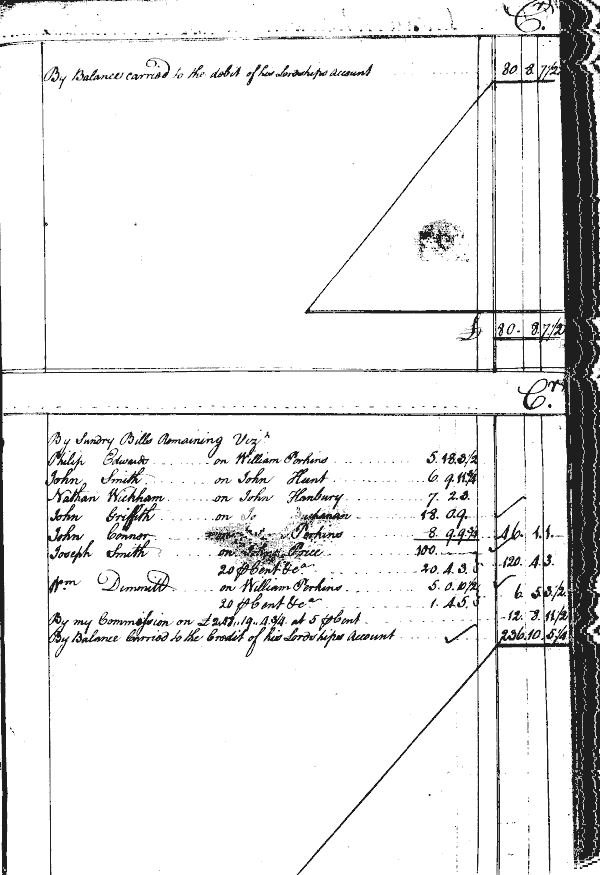 Cr.
By Balance carried to the debit of his Lordships Account 80 8 7 1/2
£ 80. 8. 7 1/2
Cr.
By Sundry Bills Remaining Vizt
Philip Edwards on William Perkins 5. 18. 3 1/2
John Smith on John Hunt 6. 9. 11 3/4
Nathan Wickham on John Hanbury 7. 2 3.
John Griffith on Jo 18. 0 9.
John Connor on Perkins 8. 9. 9 3/4 46. 1. 1.
Joseph Smith on Price 100.
20 ⅌ Cent &ca 20. 4. 3. 120. 4. 3.
Wm Dimmitt on William Perkins 5. 0. 10 1/2
20 ⅌ Cent &ca 1. 4. 5. 6. 5. 3 1/2
By my Commission on 19.. 4 3/4 at 5 ⅌ Cent 12. 8. 11 1/2
By Balance Carried to the Credit of his Lordships Account 236. 10. 5 1/4